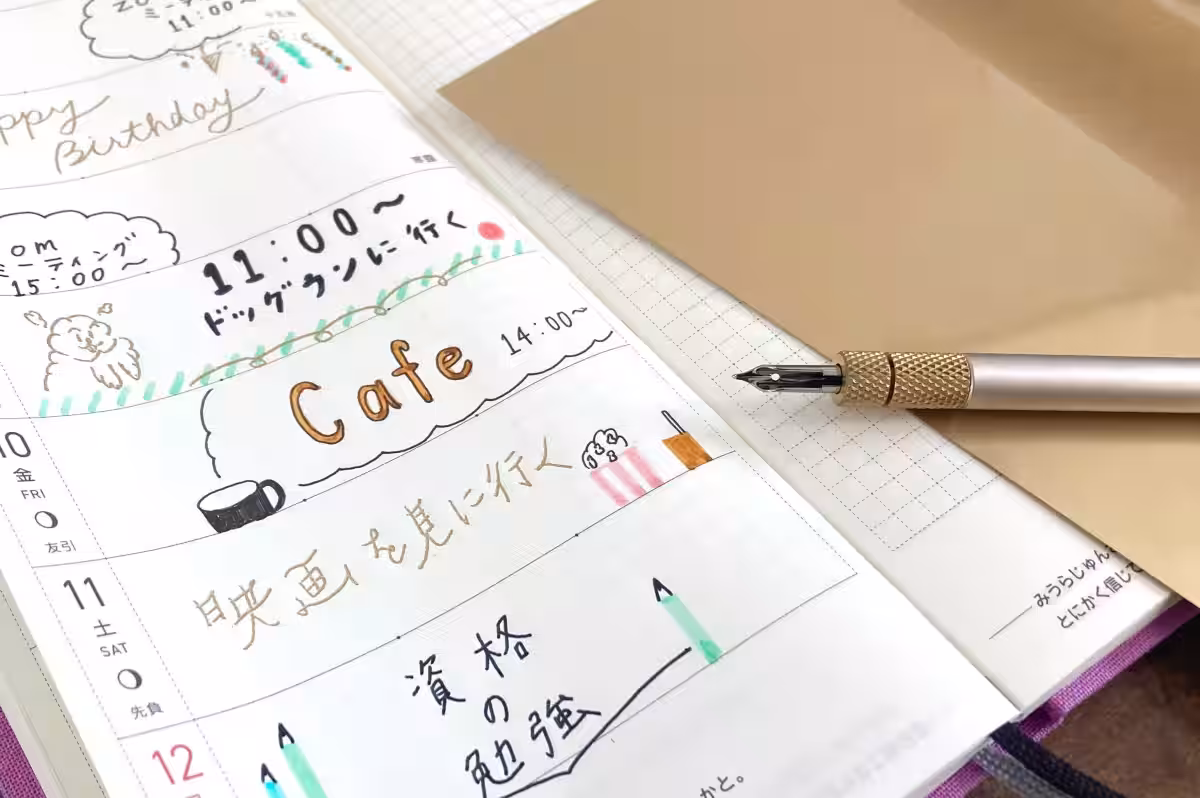 11:00〜
Birthday
ミーティング
15:00〜
11:00〜
ドッグランに行く
Cafe 14:00〜
10
金
FRI
友引
映画を見に行く
11
土
SAT
先負
資格
の
勉強
12
みうらじゅん
とにかく信じて
かと。